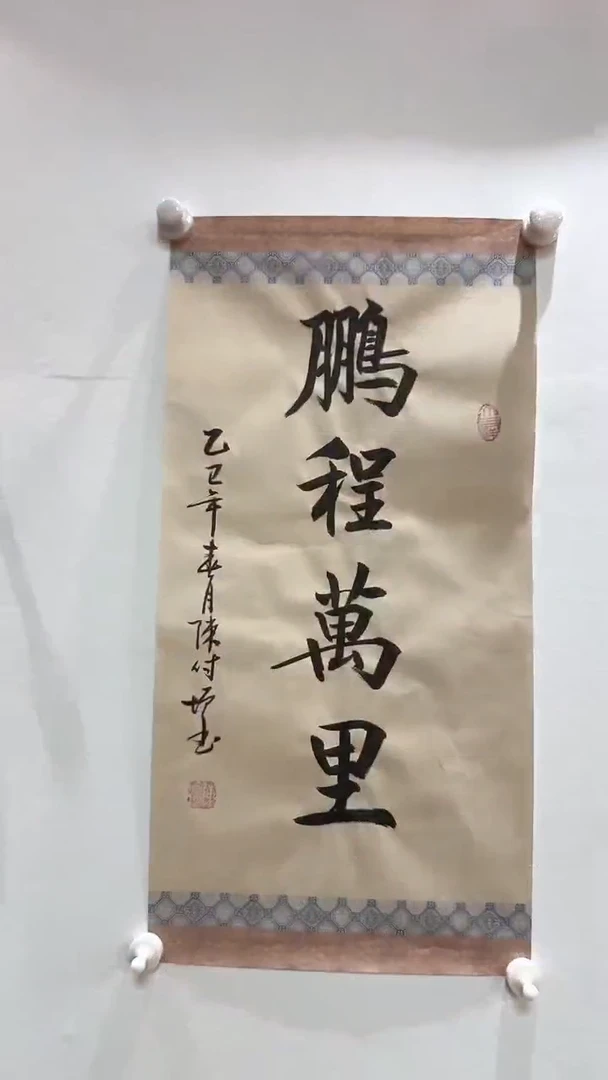 鵬程萬里
乙巳年春月陳付書